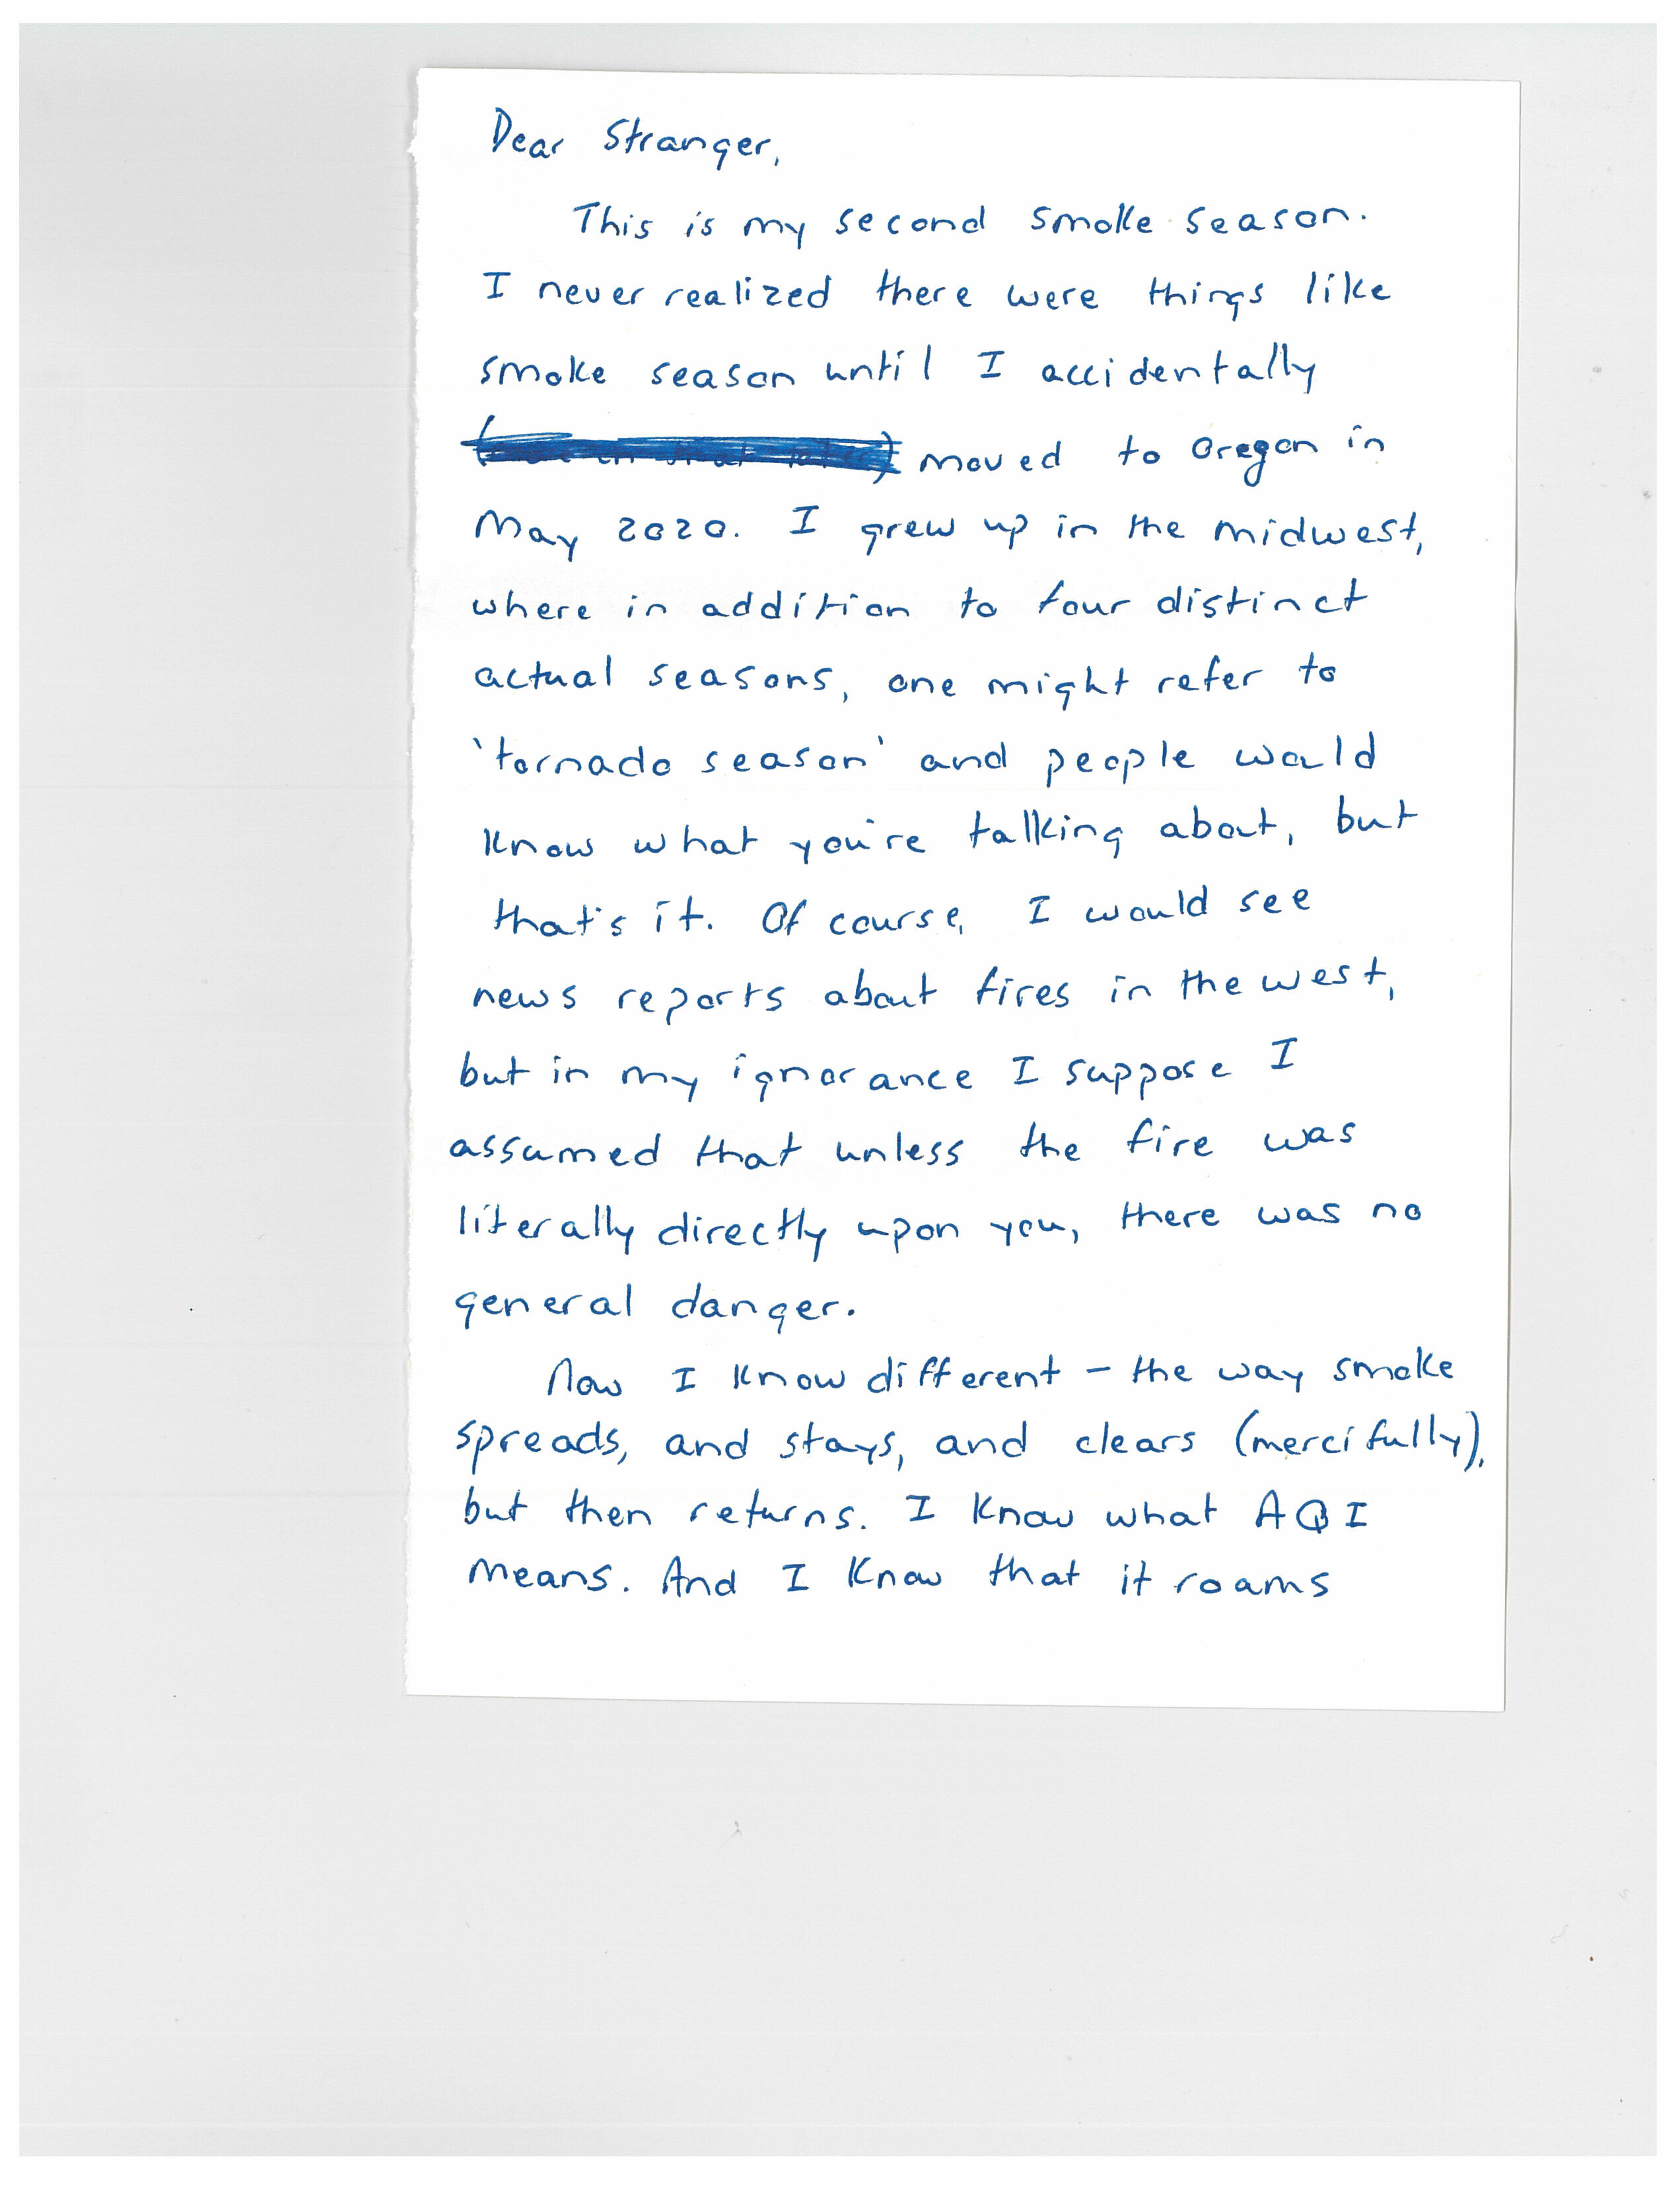 Dear Stranger,
This is my second smoke season.
I never realized there were things like
smoke season until I accidentally
moved to Oregon in
May 2020. I grew up in the midwest,
where in addition to four distinct
actual seasons, one might refer to
'tornado season' and people would
know what you're talking about, but
that's it. Of course, I would see
news reports about fires in the west,
but in my ignorance I suppose I
assumed that unless the fire was
literally directly upon you, there was no
general danger.
Now I know different – the way smoke
spreads, and stays, and clears (mercifully),
but then returns. I know what AQI
means. And I know that it roams